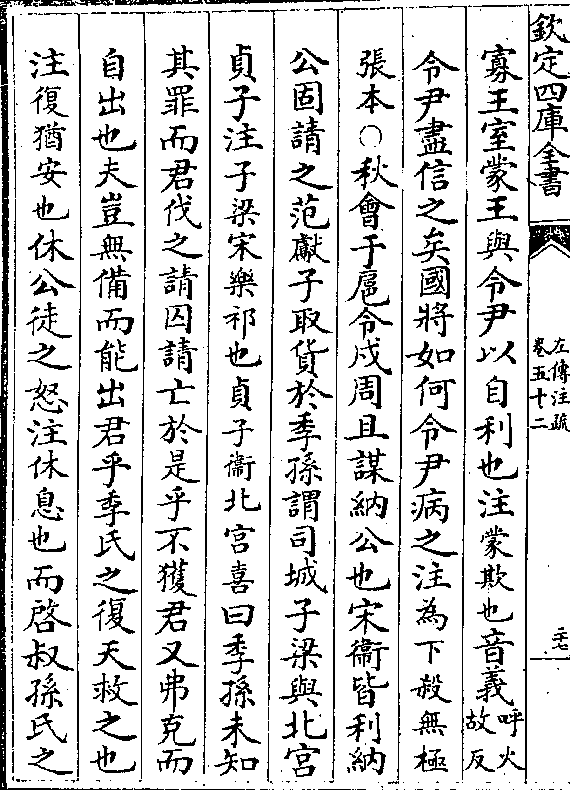 欽定四庫全書
左傳注疏
卷五十二
二十七
寡王室蒙王與令尹以自利也注蒙欺也音義呼火故反
令尹盡信之矣國將如何令尹病之注為下殺無極
張本○秋會于扈令戍周且謀納公也宋衞皆利納
公固請之范獻子取貨於季孫謂司城子梁與北宮
貞子注子梁宋樂祁也貞子衞北宮喜曰季孫未知
其罪而君伐之請囚請亡於是乎不獲君又弗克而
自出也夫豈無備而能出君乎季氏之復天救之也
注復猶安也休公徒之怒注休息也而啓叔孫氏之